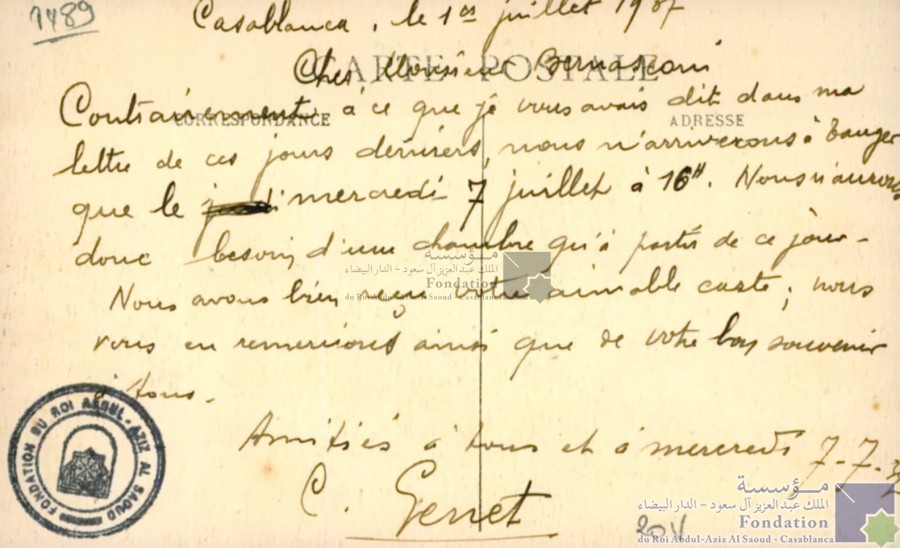 1489
Casablanca, le 1er juillet 1937
CARTE POSTALE
Cher Monsieur Bernasconi
CORRESPONDANCE
ADRESSE
Contrairement à ce que je vous avais dit dans ma
lettre de ces jours derniers, nous n'arriverons à Tanger
que le mercredi 7 juillet à 16H. Nous n'aurons
donc besoin d'une chambre qu'à partir de ce jour-
Nous avons bien reçu votre aimable carte; nous
vous en remercions ainsi que de votre bon souvenir
à tous.
Amitiés à tous et à mercredi 7-7-
C.
مؤسسة
الملك عبد العزيز آل سعود - الدار البيضاء
Fondation
du Roi Abdul-Aziz Al Saoud - Casablanca
FONDATION DU ROI ABDUL-AZIZ AL SAOUD
مؤسسة
الملك عبد العزيز آل سعود - الدار البيضاء
Fondation
du Roi Abdul-Aziz Al Saoud - Casablanca